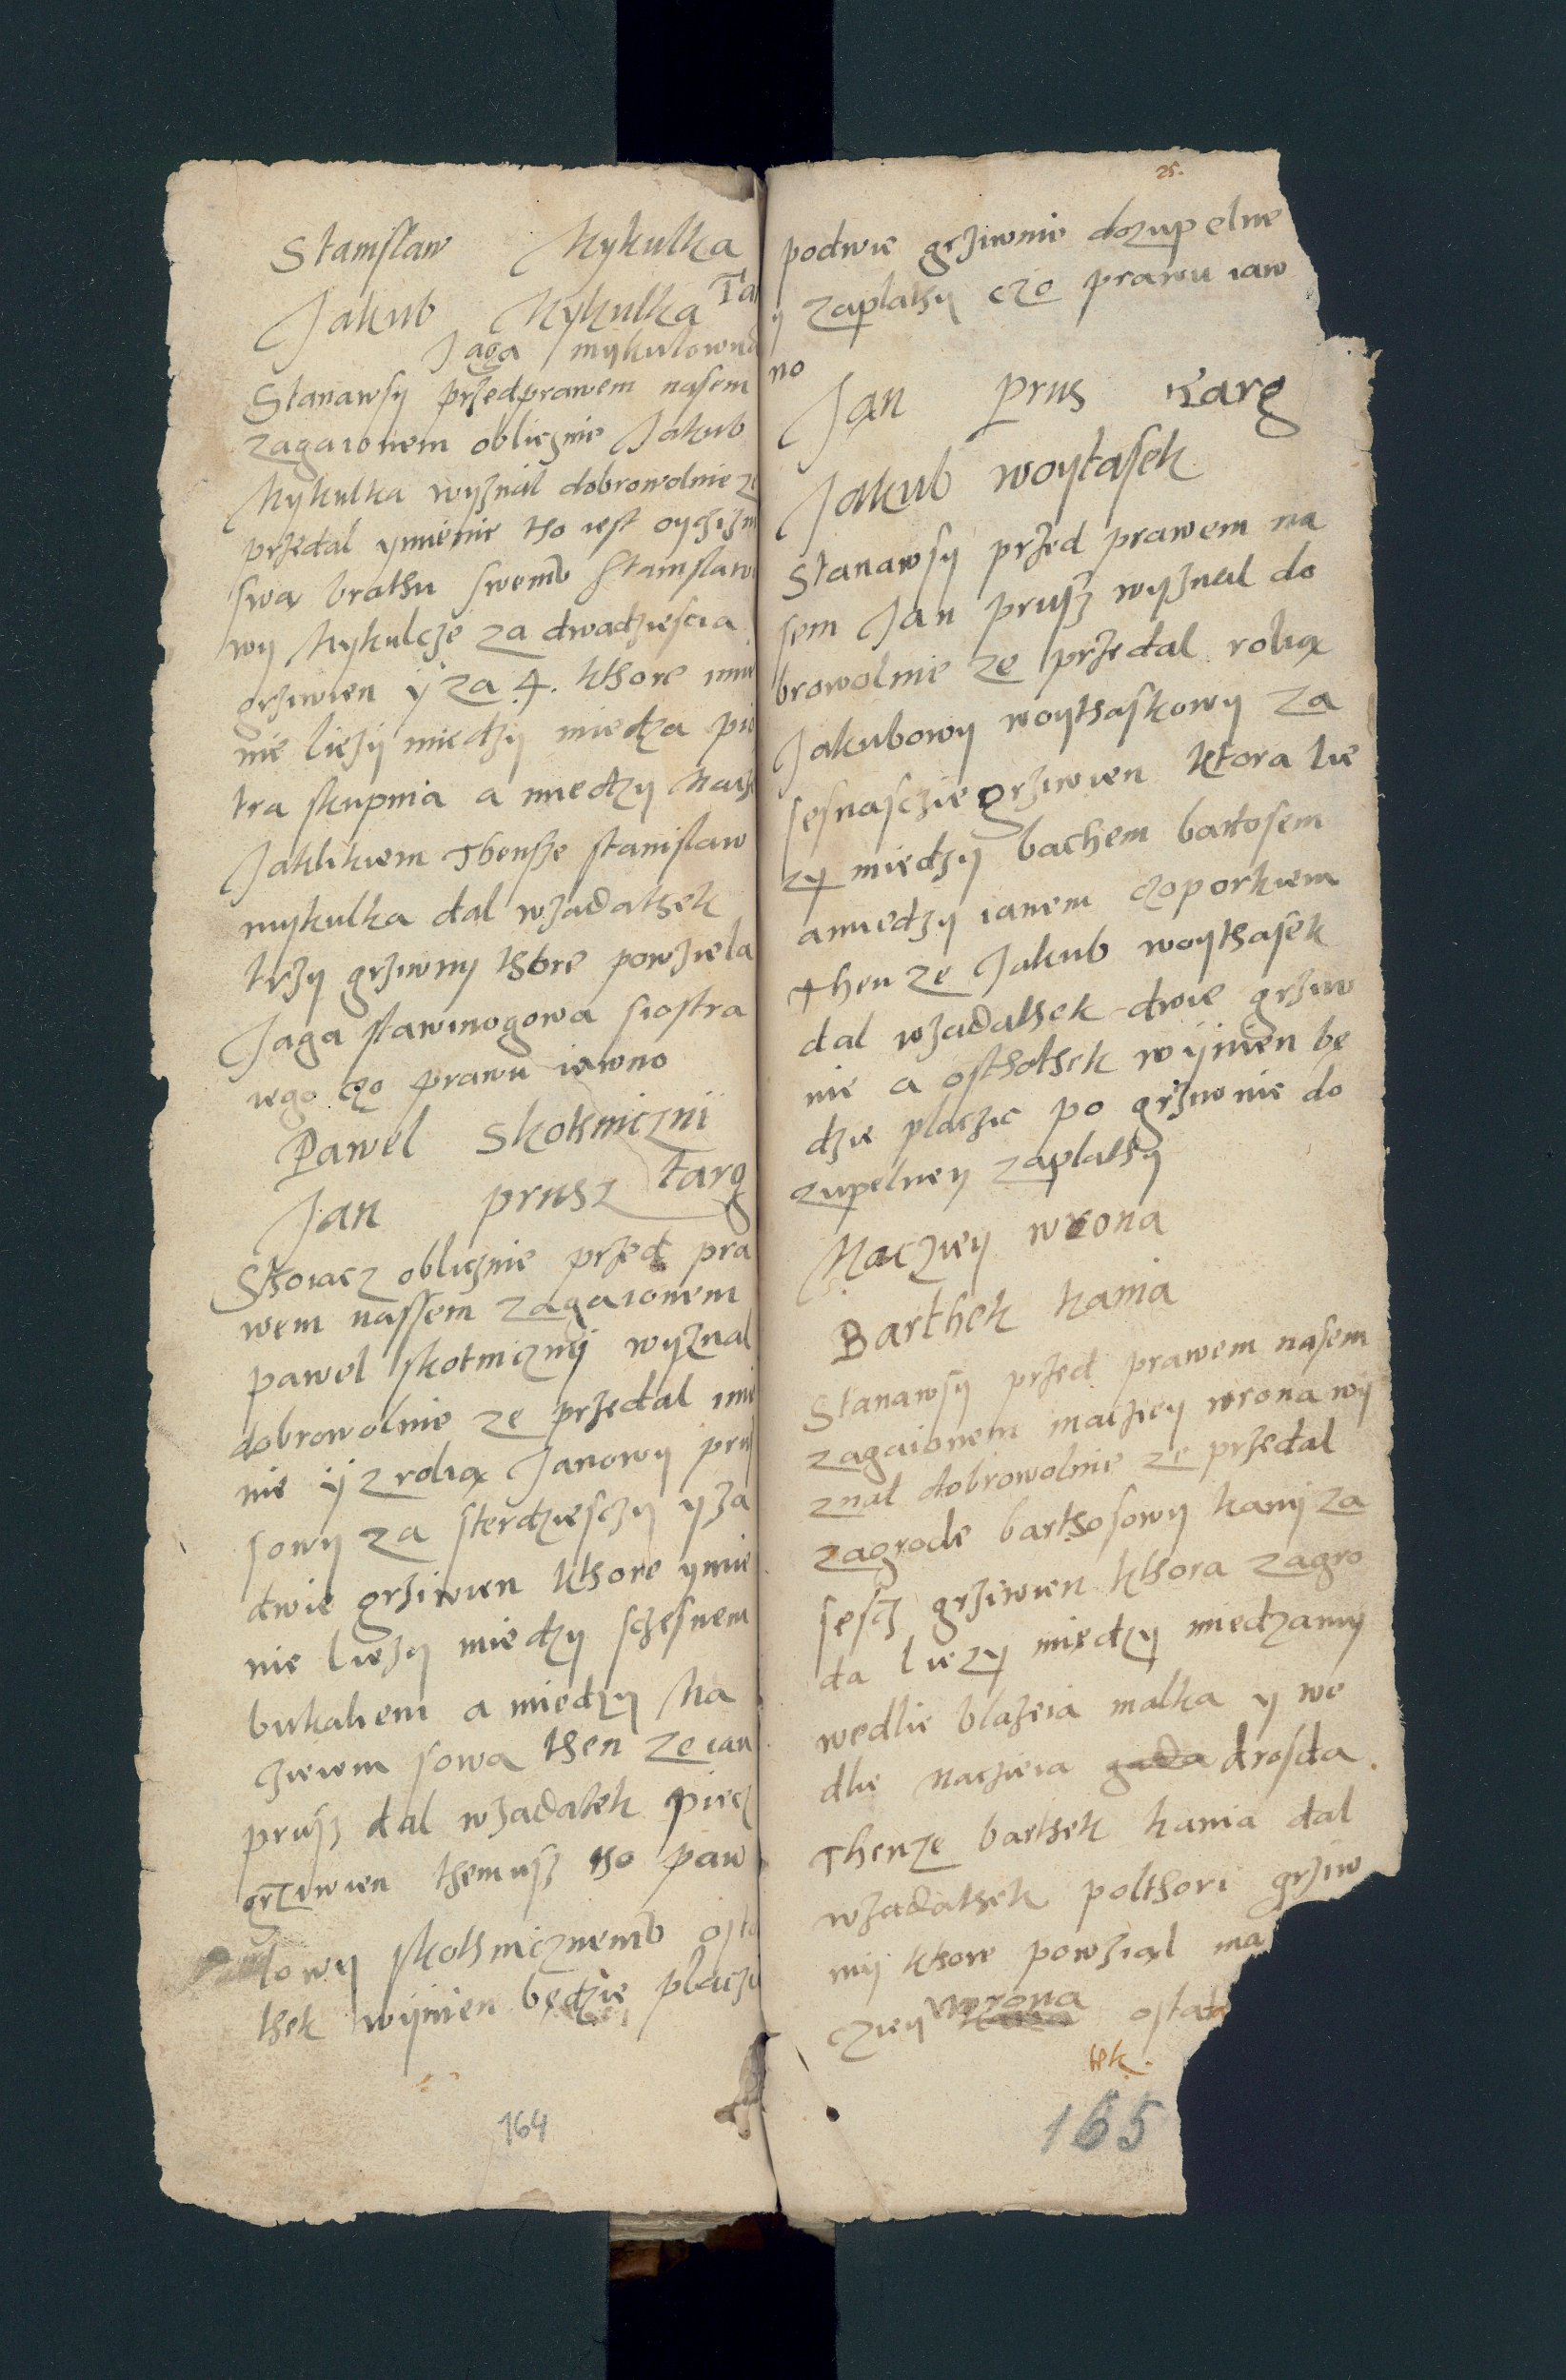 Stanislaw Mykulka
Jakub Mykulka Tar
Jaga mykulowna
Stanawsy przedprawem nasem
zagaionem oblicznie Jakub
Mykulka wyznal dobrowolnie ze
przedal ymienie tho iest oyczizn
swą brathu swemu Stanislawo
wy Mykulcze za dwadziescia
grziwien y za 4. kthore imie
nie liezy miedzy miedza pio
tra skupnia a miedzy
Jaklikiem Thensze stanislaw
mykulka dal wzadathek
trzy grziwny thore powziela
Jaga stawinogowa siostra
iego czo prawu iawno
Pawel Skothniczni
Jan prusz targ
Sthoiacz oblicznie przed pra
wem nassem zagaionem
pawel skotniczny wyznal
dobrowolnie ze przedal imie
nie y z rolią Janowy prus
sowy za sterdziesczy y za
dwie grziwien kthore ymie
nie liezy miedzy sczesnem
bukaliem a miedzy Ma
cziewem sowa then ze ian
prusz dal wzadatek piecz
grziwien themusz tho paw
lowy skothnicznemu osta
thek wijnien będzie placzi
25.
podwie grziwnie dozupelne
y zaplathy czo prawu iaw
no
Jan prus targ
Jakub woytasek
Stanawsy przed prawem na
sem Jan prusz wyznal do
browolnie ze przedal rolią
Jakubowy woythaskowy za
sesnasczie grziwien ktora lie
zy miedzy bachem bartosem
a miedzy ianem czoporkiem
Then ze Jakub woythasek
dal wzadathek dwie grziw
nie a osthathek wijnien bę
dzie placzic po grziwnie do
zupelney zaplathy
Macziey wrona
Barthek kania
Stanawsy przed prawem nasem
zagaionem macziey wrona wy
znal dobrowolnie ze przedal
zagrode barthosowy kani za
sescz grziwien kthora zagro
da liezy miedzy miedzamy
wedlie blazeia malka y we
dlie maczieia gada drosda.
Thenze barthek kania dal
wzadathek polthori grziw
ny kthore powziąl ma
cziey wrona kania ostata
tek.
164
165